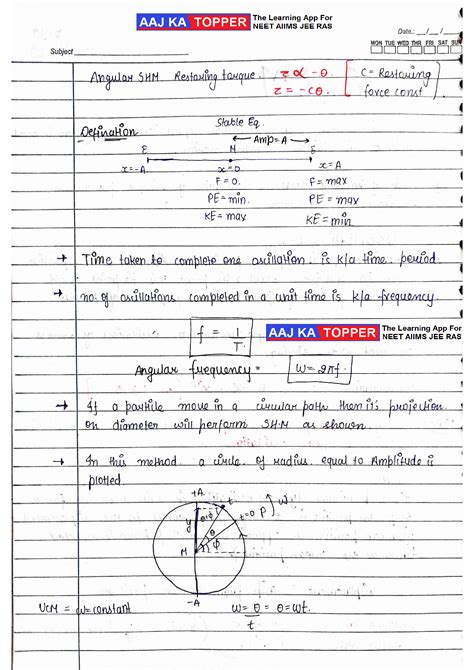 AAJ KA TOPPER The Learning App For
NEET AIIMS JEE RAS
Date: __/__/__
MON TUE WED THU FRI SAT SUN
Subject
Angular SHM Restoring torque. τ α -θ [ C = Restoring
τ = -cθ force const ]
Stable Eq.
Defination
← Amp = A →
E M E
x=-A x=0 x=A
F=0. F= max
PE=min. PE = max
KE= max KE= min
→ Time taken to complete one oscillation is k/a time period.
→ no. of oscillations completed in a unit time is k/a frequency.
f = 1/T.
AAJ KA TOPPER The Learning App For
NEET AIIMS JEE RAS
Angular frequency = ω = 2πf.
→ If a particle move in a circular path then it's projection
on diameter will perform SHM as shown.
→ In this method a circle of radius equal to Amplitude is
plotted.
+A
t ω
y θ+φ t=0 P
θ
M φ
-A
UCM = ω = constant ω = θ/t = θ = ωt.